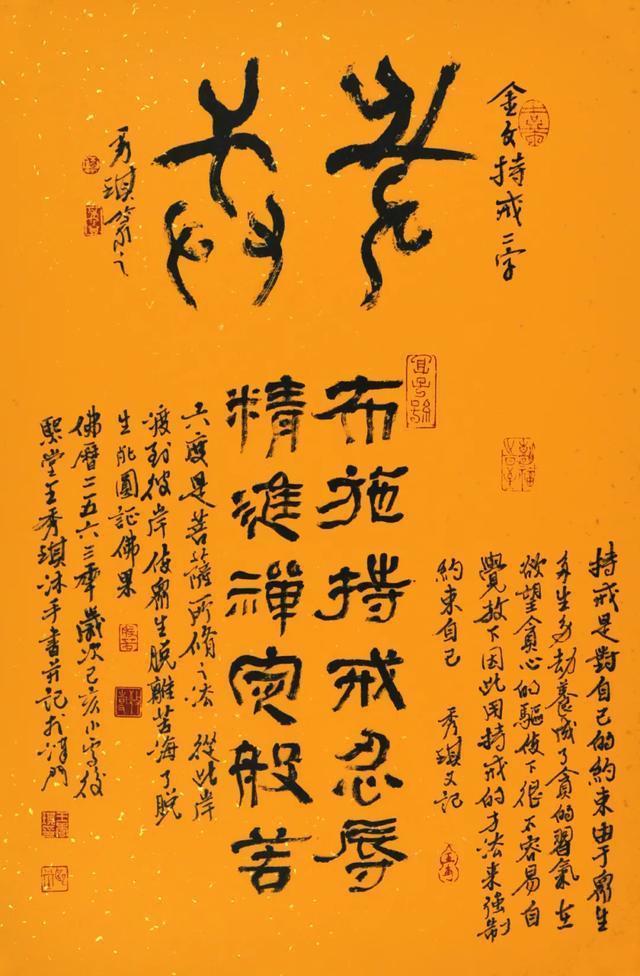 金文持戒二字
持
戒
秀琪篆之
持戒是對自己的約束由于眾生
多生多劫養成了貪的習氣在
欲望貪心的驅使下很不容易自
覺放下因此用持戒的方法來強制
約束自己 秀琪又記
宜子孫
布施持戒忍辱
精進禪定般若
六度是菩薩所脩之法 從此岸
渡到彼岸使眾生脫離苦海了脫
生死圓証佛果
佛曆二五六三年歲次己亥小雪後
熙堂王秀琪沐手書并記於津門